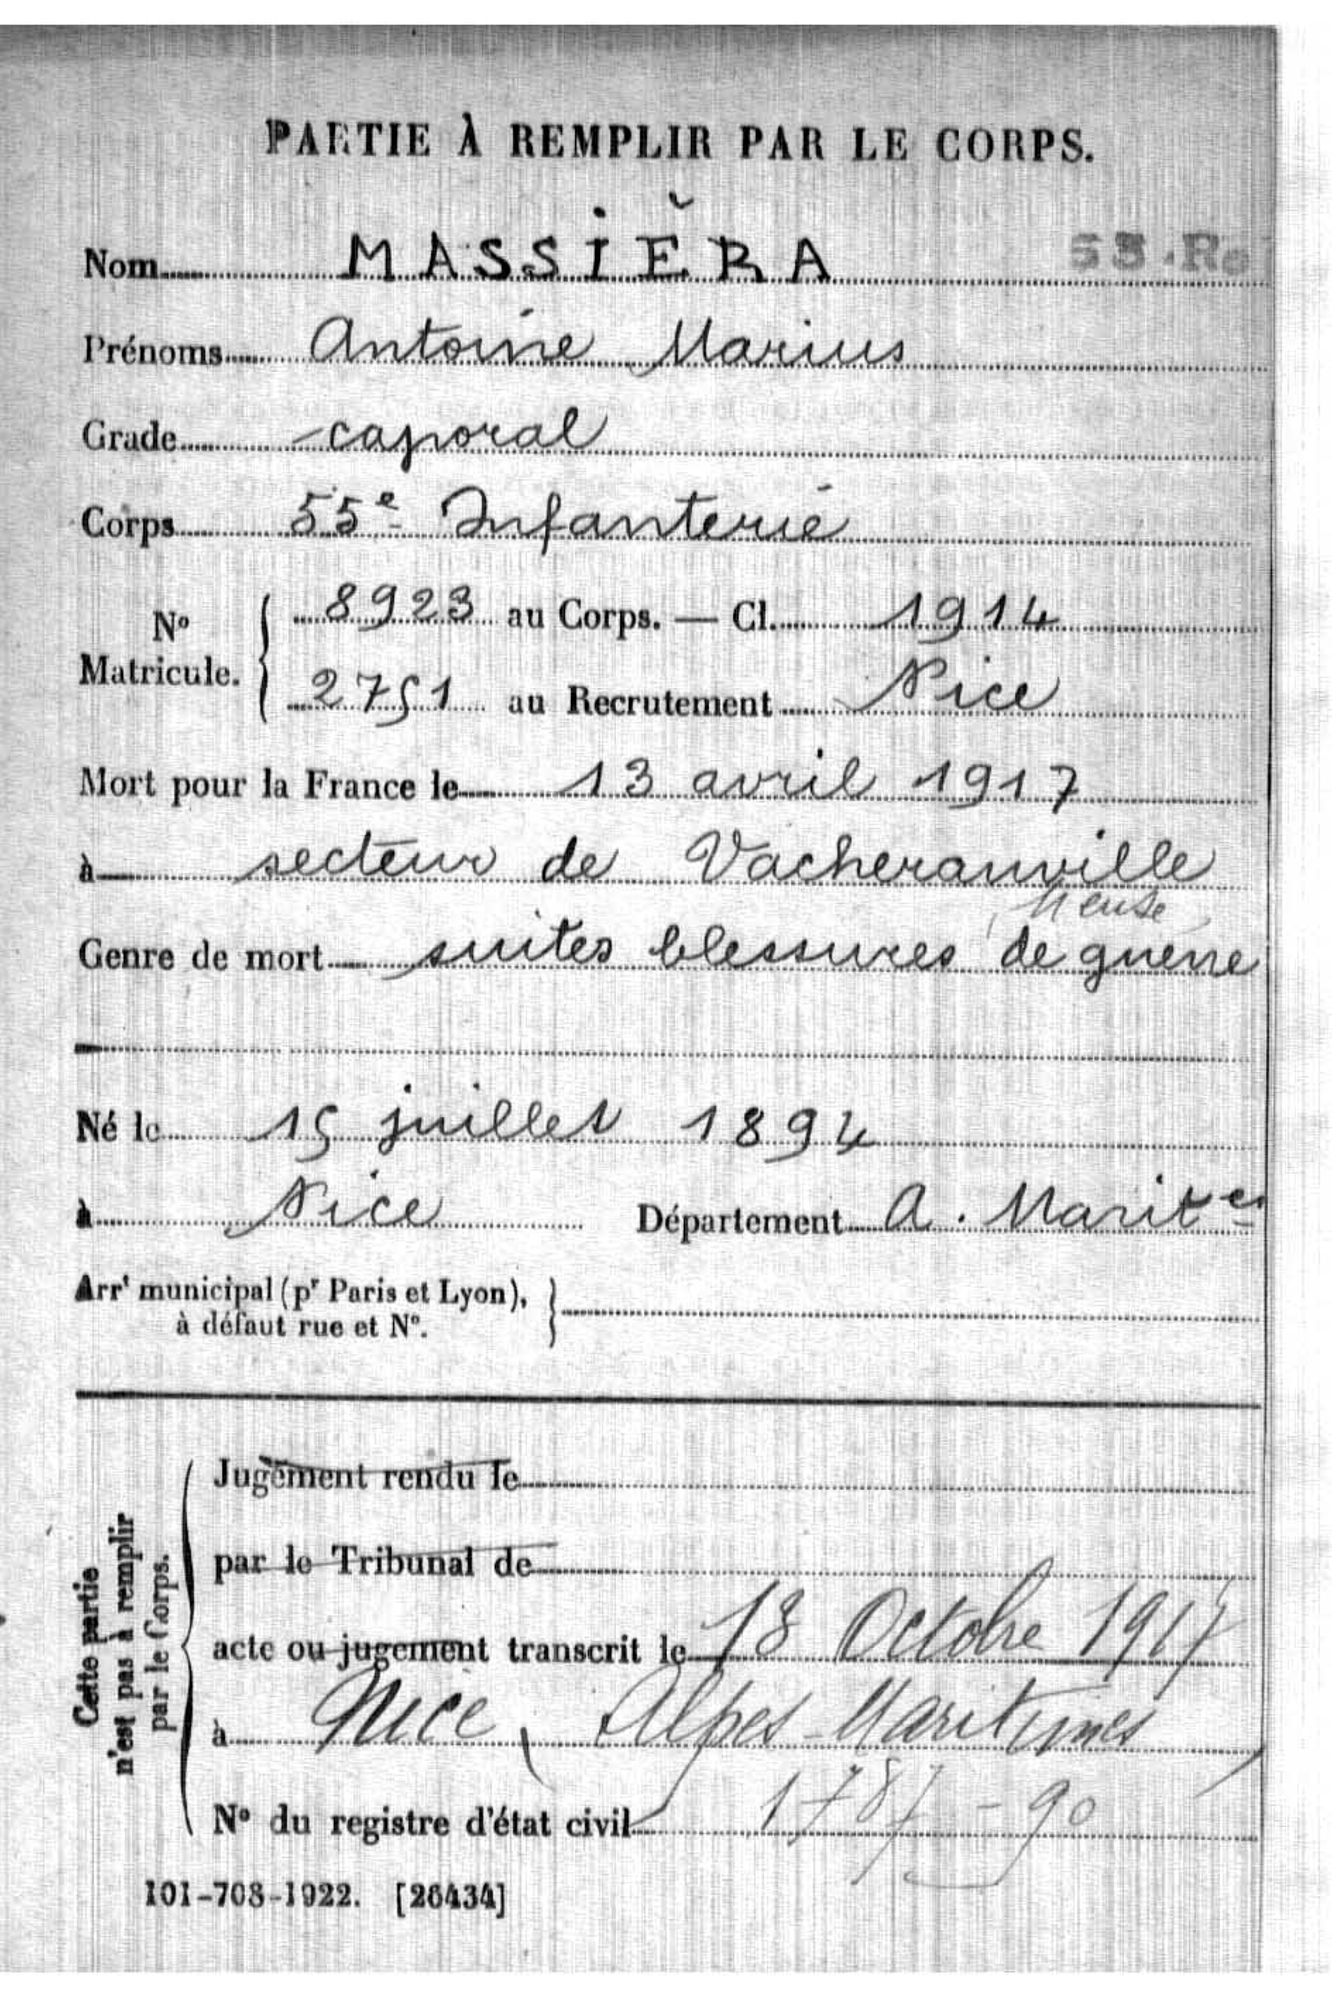 PARTIE À REMPLIR PAR LE CORPS.
Nom MASSIÉRA
Prénoms Antoine Marius
Grade caporal
Corps 55e Infanterie
No Matricule. 8923 au Corps. — Cl. 1914
2751 au Recrutement Nice
Mort pour la France le 13 avril 1917
à secteur de Vacherauville
Meuse
Genre de mort suites blessures de guerre
Né le 15 juillet 1894
à Nice Département A. Marites
Arrt municipal (pr Paris et Lyon),
à défaut rue et No.
Cette partie
n'est pas à remplir
par le Corps.
Jugement rendu le
par le Tribunal de
acte ou jugement transcrit le 18 Octobre 1917
à Nice, Alpes-Maritimes
No du registre d'état civil 1787-90
101-708-1922. [26434]